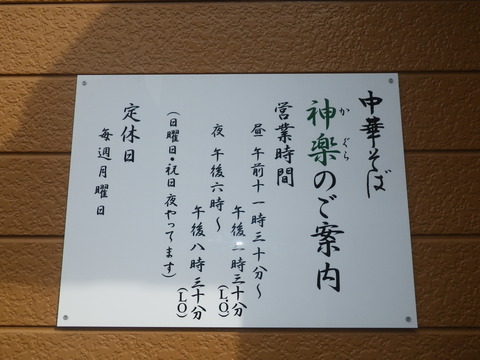 中華そば
神楽のご案内
かぐら
営業時間
昼 午前十一時三十分～
午後一時三十分
(LO)
夜 午後六時～
午後八時三十分
(LO)
(日曜日・祝日夜やってます)
定休日
毎週月曜日